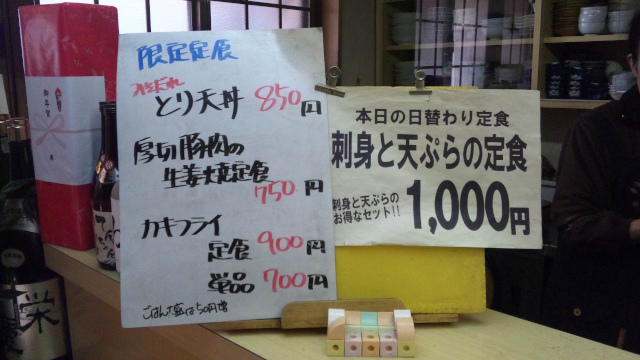 限定定食
みそだれ
とり天丼 850円
厚切豚肉の
生姜焼定食
750円
カキフライ
定食 900円
単品 700円
ごはん大盛は50円増
本日の日替わり定食
刺身と天ぷらの定食
刺身と天ぷらの
お得なセット!! 1,000円
御年賀
栄